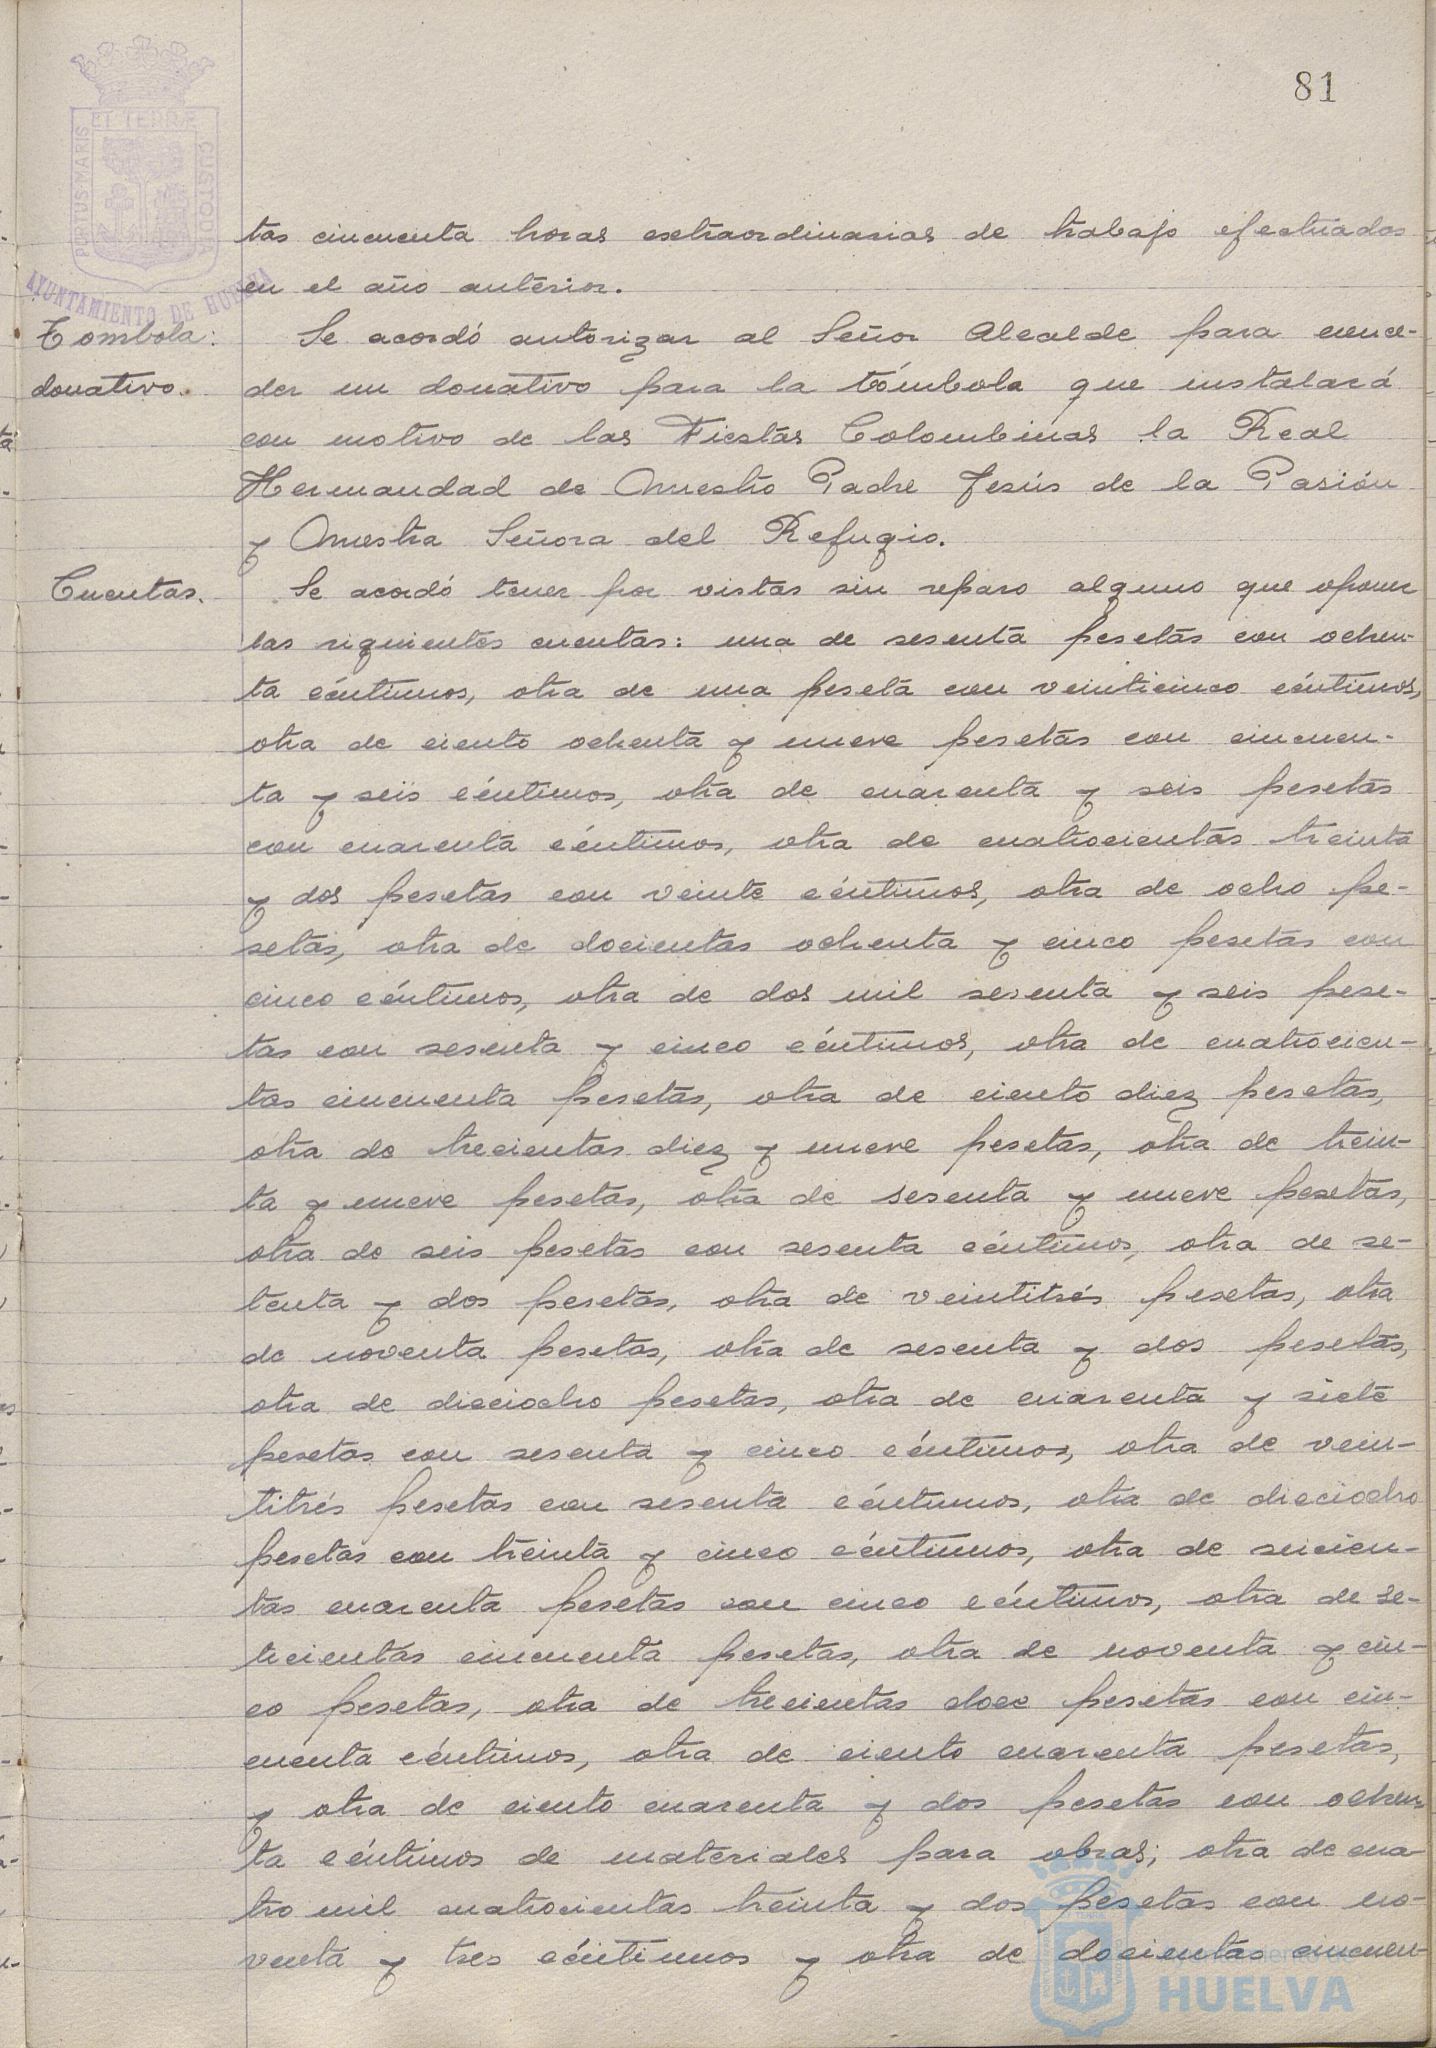 81
ET TERRÆ
PORTUS MARIS
CUSTODIA
AYUNTAMIENTO DE HUELVA
tas cincuenta horas extraordinarias de trabajo efectuadas
en el año anterior.
Tombola:
donativo.
Se acordó autorizar al Señor Alcalde para conce-
der un donativo para la tómbola que instalará
con motivo de las Fiestas Colombinas la Real
Hermandad de Nuestro Padre Jesús de la Pasión
y Nuestra Señora del Refugio.
Cuentas.
Se acordó tener por vistas sin reparo alguno que oponer
las siguientes cuentas: una de sesenta pesetas con ochen-
ta céntimos, otra de una peseta con veinticinco céntimos,
otra de ciento ochenta y nueve pesetas con cincuen-
ta y seis céntimos, otra de cuarenta y seis pesetas
con cuarenta céntimos, otra de cuatrocientas treinta
y dos pesetas con veinte céntimos, otra de ocho pe-
setas, otra de docientas ochenta y cinco pesetas con
cinco céntimos, otra de dos mil sesenta y seis pese-
tas con sesenta y cinco céntimos, otra de cuatrocien-
tas cincuenta pesetas, otra de ciento diez pesetas,
otra de trecientas diez y nueve pesetas, otra de trein-
ta y nueve pesetas, otra de sesenta y nueve pesetas,
otra de seis pesetas con sesenta céntimos, otra de se-
tenta y dos pesetas, otra de veintitrés pesetas, otra
de noventa pesetas, otra de sesenta y dos pesetas,
otra de dieciocho pesetas, otra de cuarenta y siete
pesetas con sesenta y cinco céntimos, otra de vein-
titrés pesetas con sesenta céntimos, otra de dieciocho
pesetas con treinta y cinco céntimos, otra de seicien-
tas cuarenta pesetas con cinco céntimos, otra de se-
tecientas cincuenta pesetas, otra de noventa y cin-
co pesetas, otra de trecientas doce pesetas con cin-
cuenta céntimos, otra de ciento cuarenta pesetas,
y otra de ciento cuarenta y dos pesetas con ochen-
ta céntimos de materiales para obras; otra de cua-
tro mil cuatrocientas treinta y dos pesetas con no-
venta y tres céntimos y otra de docientas cincuen-
Ayuntamiento de
HUELVA